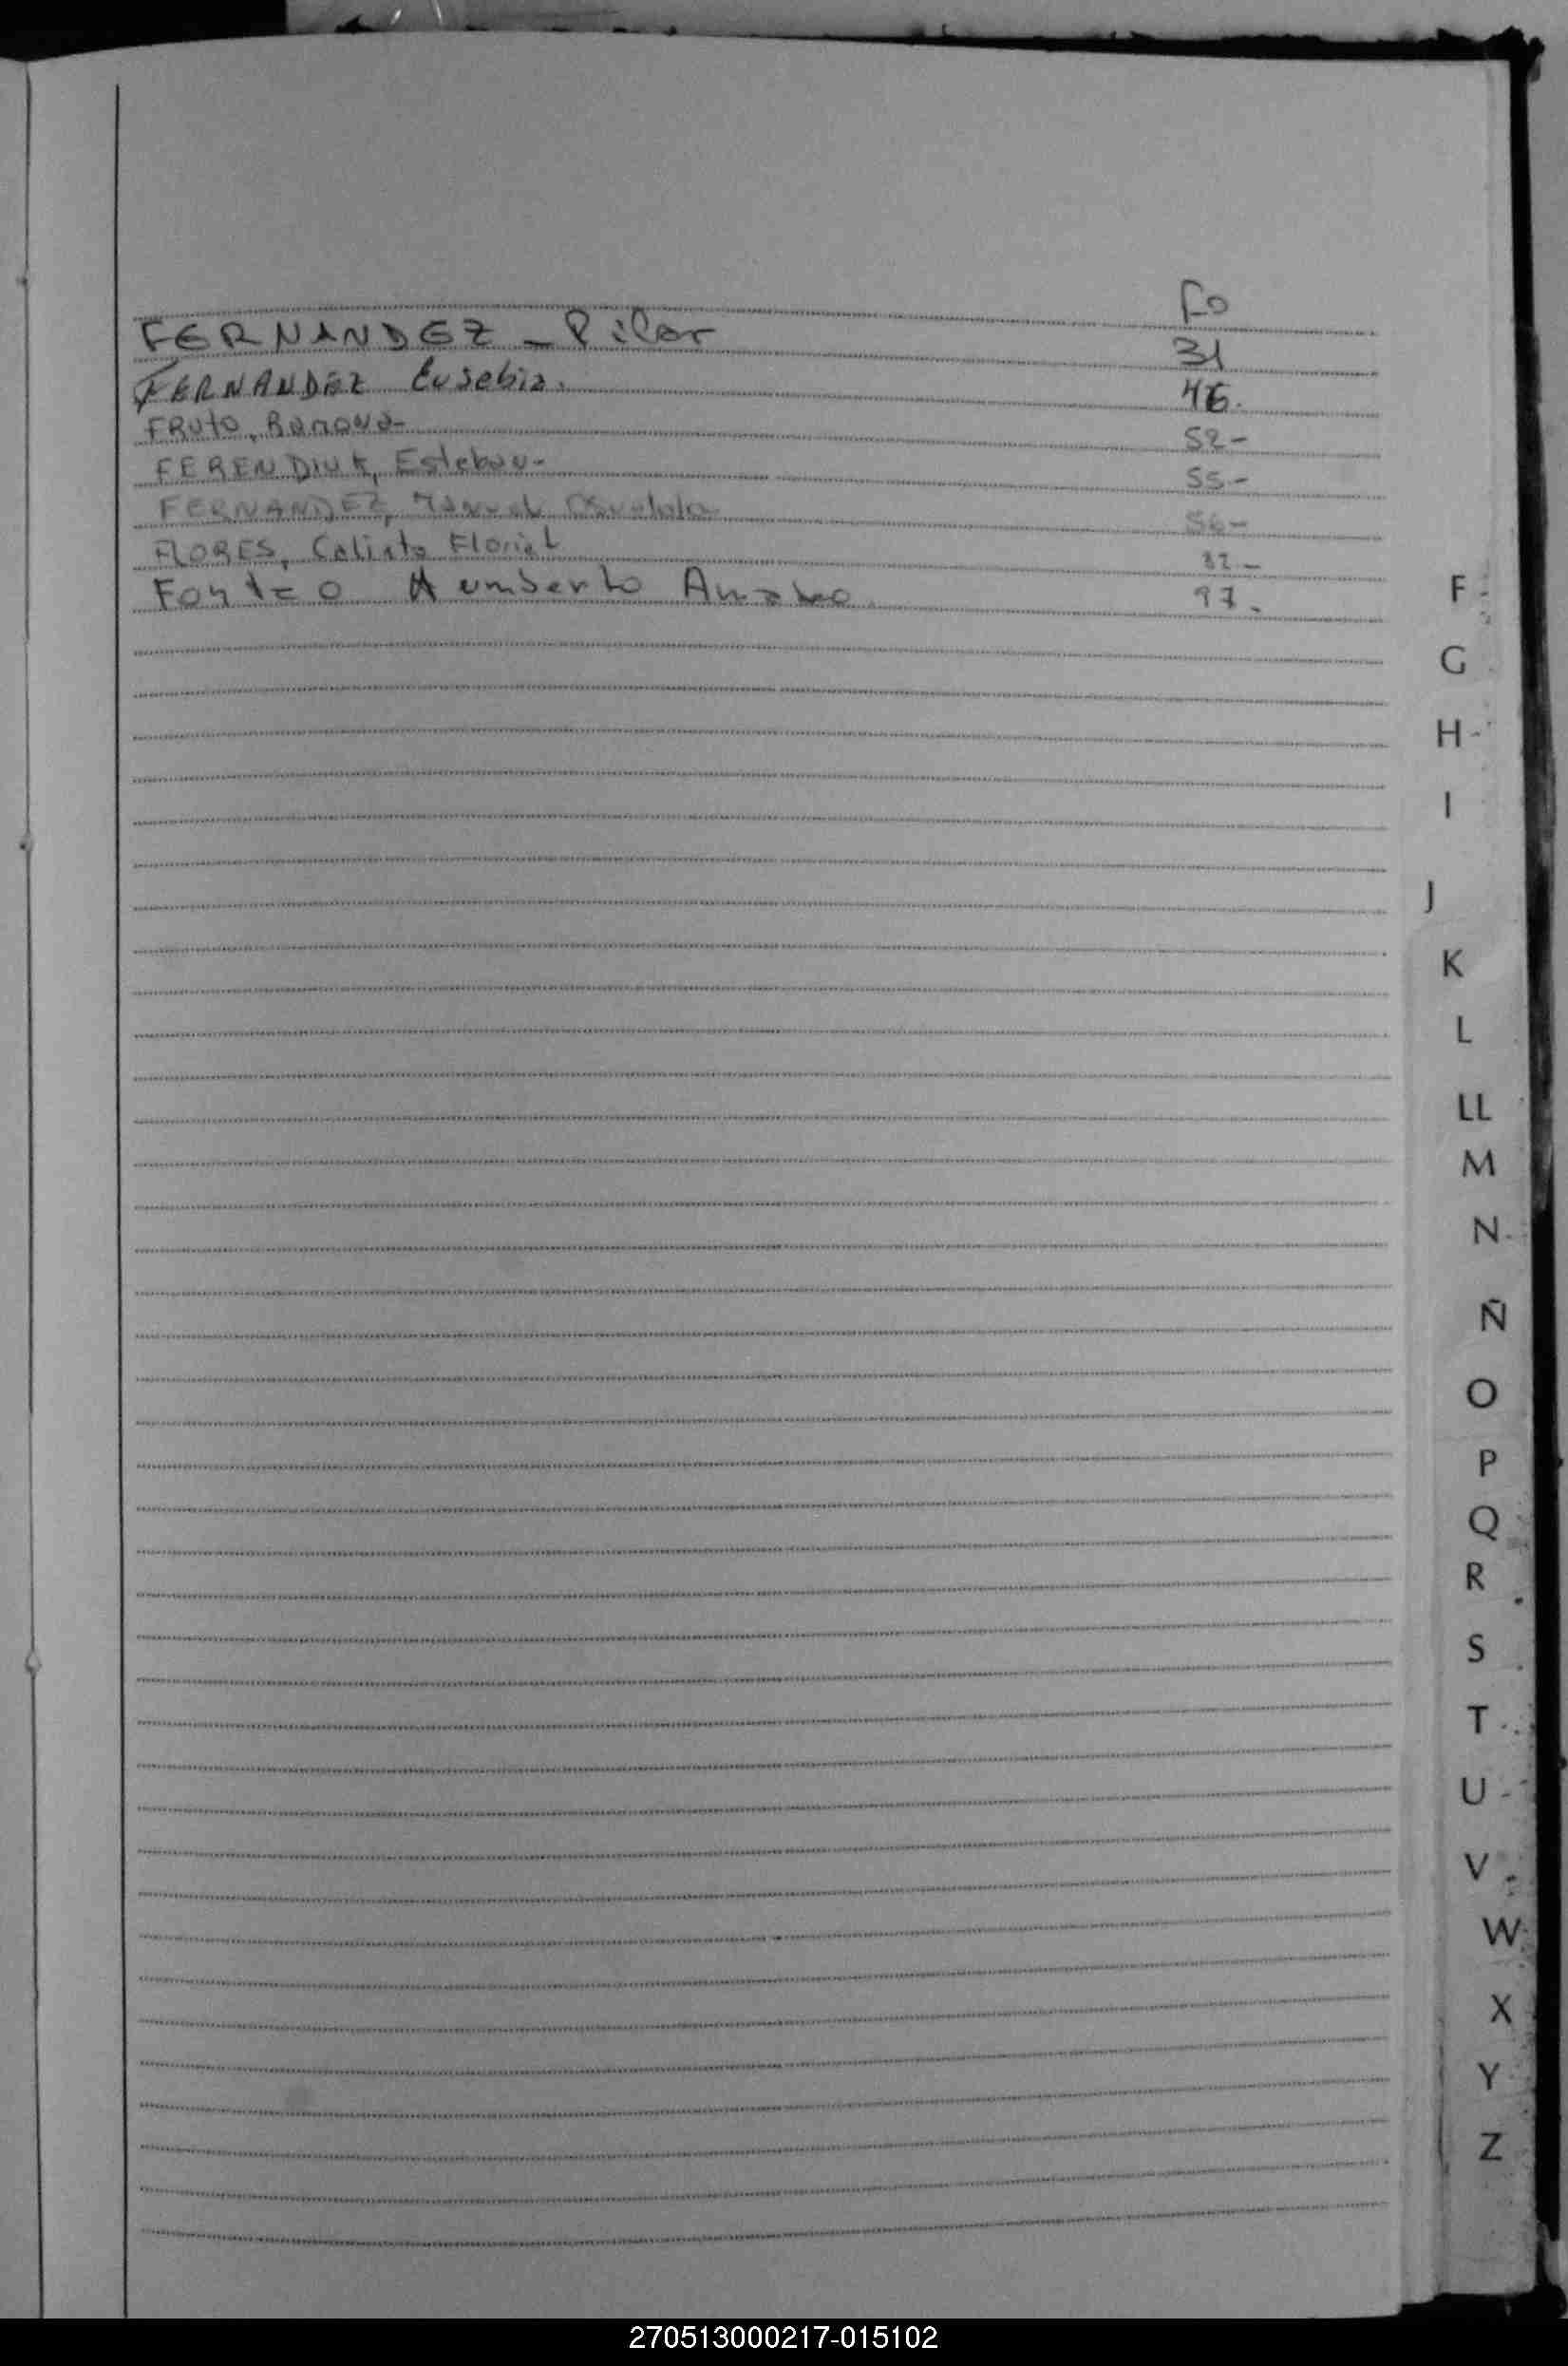 Fo
FERNANDEZ - Pilar 31
FERNANDEZ Eusebia. 46.
FRUTO, Ramona- 52-
FERENDIUK, Esteban- 55-
FERNANDEZ, Manuel Osvaldo 56-
FLORES, Calixto 82-
Humberto 97.
F
G
H
I
J
K
L
LL
M
N
Ñ
O
P
Q
R
S
T
U
V
W
X
Y
Z
270513000217-015102